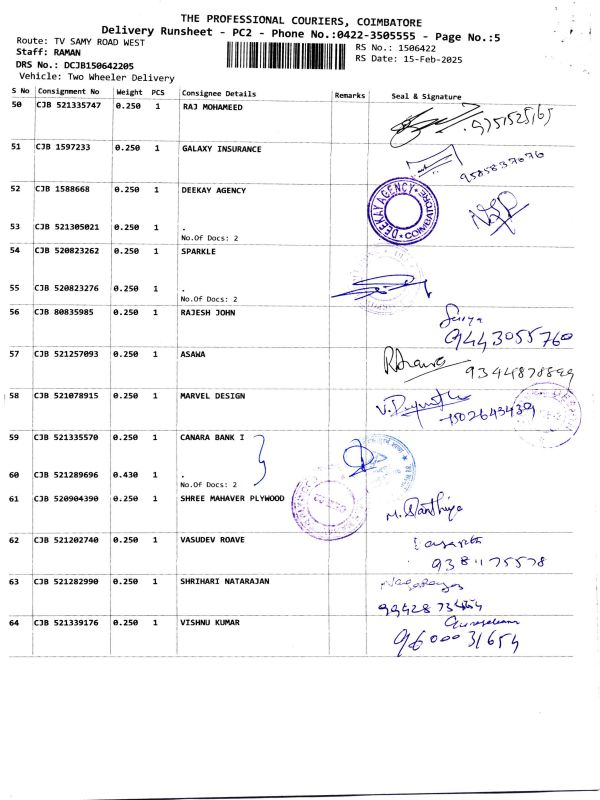 THE PROFESSIONAL COURIERS, COIMBATORE
Delivery Runsheet - PC2 - Phone No.:0422-3505555 - Page No.:5
Route: TV SAMY ROAD WEST
RS No.: 1506422
Staff: RAMAN
RS Date: 15-Feb-2025
DRS No.: DCJB150642205
Vehicle: Two Wheeler Delivery
S No Consignment No Weight PCS Consignee Details Remarks Seal & Signature
50 CJB 521335747 0.250 1 RAJ MOHAMEED
51 CJB 1597233 0.250 1 GALAXY INSURANCE
9585837676
52 CJB 1588668 0.250 1 DEEKAY AGENCY
DEEKAY AGENCY COIMBATORE
53 CJB 521305021 0.250 1 .
No.Of Docs: 2
54 CJB 520823262 0.250 1 SPARKLE
55 CJB 520823276 0.250 1 .
No.Of Docs: 2
56 CJB 80835985 0.250 1 RAJESH JOHN
Surya
9443055760
57 CJB 521257093 0.250 1 ASAWA
9344878899
58 CJB 521078915 0.250 1 MARVEL DESIGN
7502643439
59 CJB 521335570 0.250 1 CANARA BANK I
60 CJB 521289696 0.430 1 .
No.Of Docs: 2
61 CJB 520904390 0.250 1 SHREE MAHAVER PLYWOOD
M. Santhiya
62 CJB 521202740 0.250 1 VASUDEV ROAVE
9381175578
63 CJB 521282990 0.250 1 SHRIHARI NATARAJAN
64 CJB 521339176 0.250 1 VISHNU KUMAR
9600031654